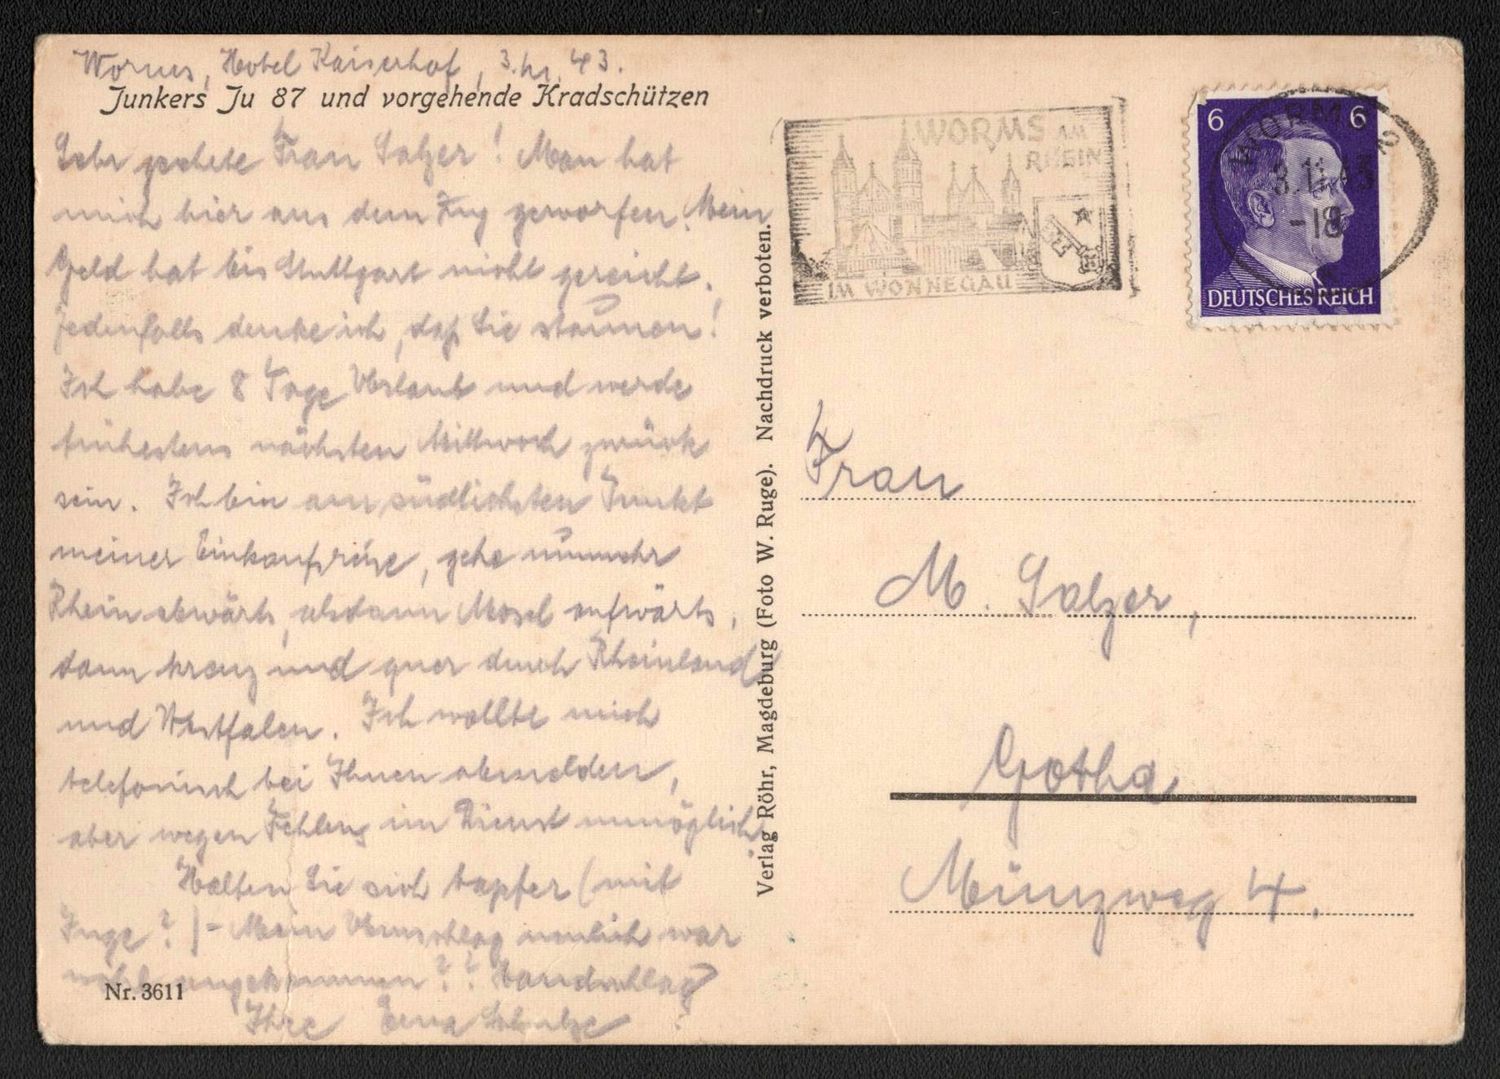 Worms, Hotel Kaiserhof, 3.XI.43.
Junkers Ju 87 und vorgehende Kradschützen
Sehr geehrte Frau Salzer! Man hat
mich hier aus dem Zug geworfen. Mein
Geld hat bis Stuttgart nicht gereicht.
Jedenfalls denke ich, daß Sie staunen!
Ich habe 8 Tage Urlaub und werde
frühestens nächsten Mittwoch zurück
sein. Ich bin am südlichsten Punkt
meiner Einkaufsreise, gehe nunmehr
Rhein abwärts, alsdann Mosel aufwärts,
dann kreuz und quer durch Rheinland
und Westfalen. Ich wollte mich
telefonisch bei Ihnen abmelden,
aber wegen Fehlens im Dienst unmöglich!
Halten Sie sich tapfer (mit
Inge?) - Mein Umschlag neulich war
wohl angekommen?? Handschlag
Ihre Erna Schulze
Nr. 3611
Verlag Röhr, Magdeburg (Foto W. Ruge). Nachdruck verboten.
WORMS AM
RHEIN
IM WONNEGAU
6 6
DEUTSCHES REICH
WORMS 2
3.11.43
-18
Frau
M. Salzer,
Gotha
Münzweg 4.